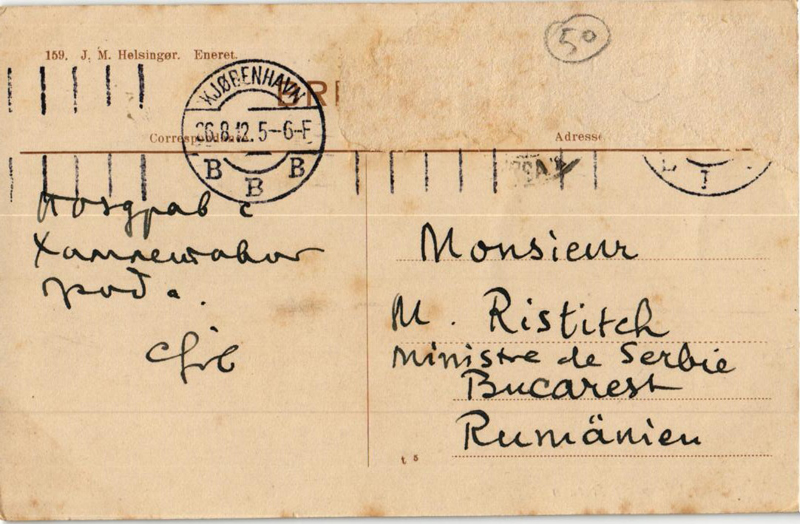 50
159. J. M. Helsingør. Eneret.
BRE
KJØBENHAVN
26.8.12.5-6-F
B B B
Correspondance
Adresse
Поздрав с
Хамлетовог
града.
Monsieur
M. Ristitch
Ministre de Serbie
Bucarest
Rumänien
t 5